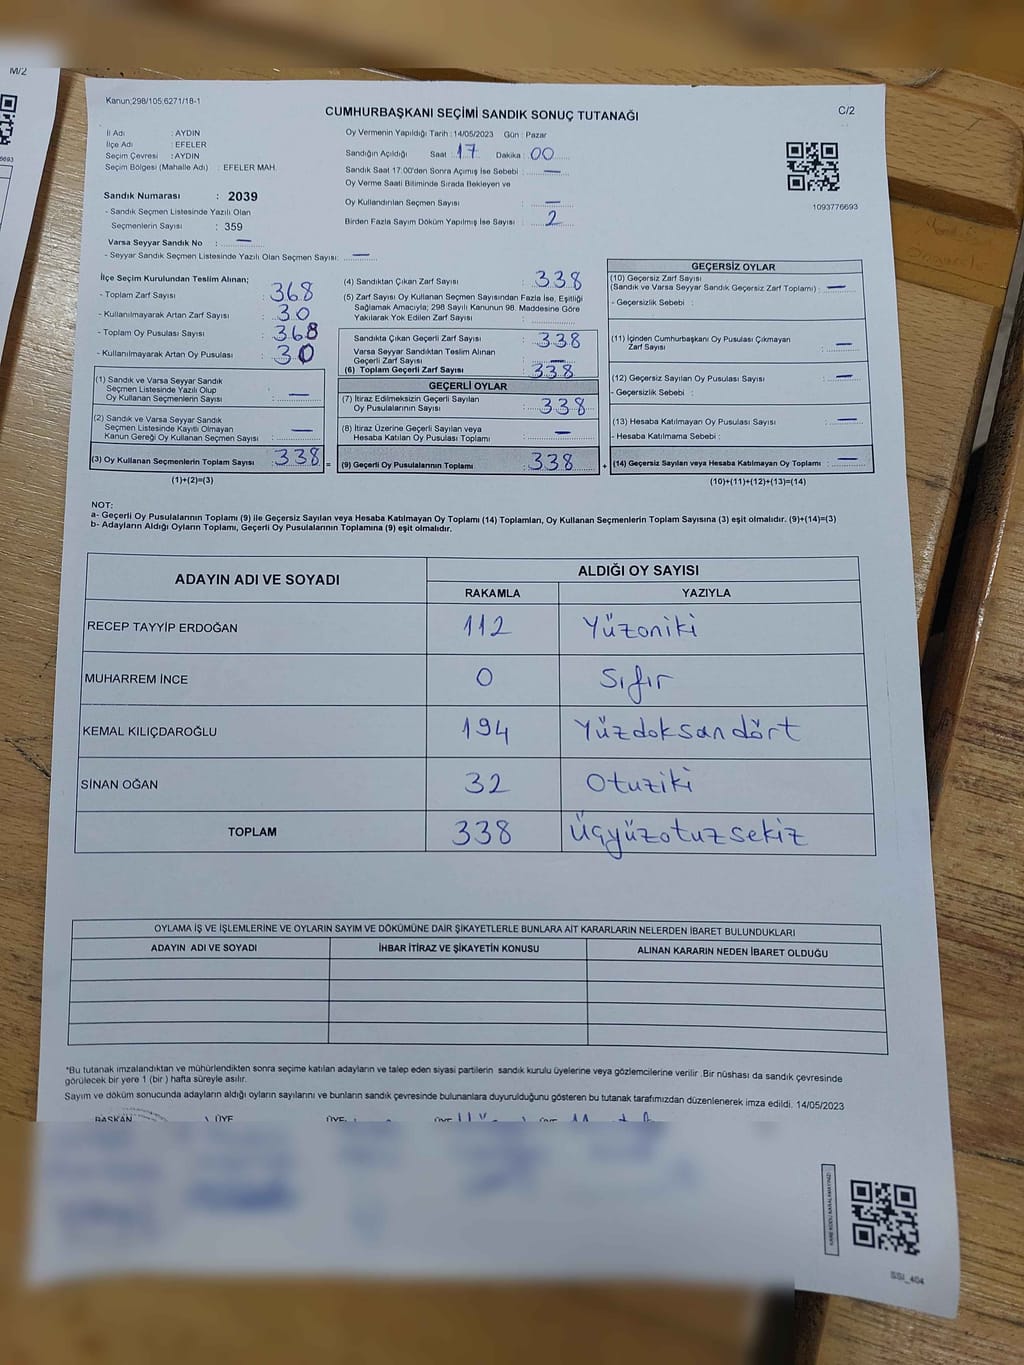 M/2
Kanun;298/105;6271/18-1
CUMHURBAŞKANI SEÇİMİ SANDIK SONUÇ TUTANAĞI
C/2
İl Adı : AYDIN
İlçe Adı : EFELER
Seçim Çevresi : AYDIN
Seçim Bölgesi (Mahalle Adı) : EFELER MAH.
Oy Vermenin Yapıldığı Tarih : 14/05/2023 Gün : Pazar
Sandığın Açıldığı Saat : 17 Dakika : 00
Sandık Saat 17:00'den Sonra Açmış İse Sebebi : —
Oy Verme Saati Bitiminde Sırada Bekleyen ve
Oy Kullandırılan Seçmen Sayısı : —
Birden Fazla Sayım Döküm Yapılmış İse Sayısı : 2
1093776693
Sandık Numarası : 2039
- Sandık Seçmen Listesinde Yazılı Olan
Seçmenlerin Sayısı : 359
Varsa Seyyar Sandık No : —
- Seyyar Sandık Seçmen Listesinde Yazılı Olan Seçmen Sayısı: —
İlçe Seçim Kurulundan Teslim Alınan;
- Toplam Zarf Sayısı : 368
- Kullanılmayarak Artan Zarf Sayısı : 30
- Toplam Oy Pusulası Sayısı : 368
- Kullanılmayarak Artan Oy Pusulası : 30
(1) Sandık ve Varsa Seyyar Sandık
Seçmen Listesinde Yazılı Olup
Oy Kullanan Seçmenlerin Sayısı : —
(2) Sandık ve Varsa Seyyar Sandık
Seçmen Listesinde Kayıtlı Olmayan
Kanun Gereği Oy Kullanan Seçmen Sayısı : —
(3) Oy Kullanan Seçmenlerin Toplam Sayısı : 338 =
(1)+(2)=(3)
(4) Sandıktan Çıkan Zarf Sayısı : 338
(5) Zarf Sayısı Oy Kullanan Seçmen Sayısından Fazla İse, Eşitliği
Sağlamak Amacıyla; 298 Sayılı Kanunun 98. Maddesine Göre
Yakılarak Yok Edilen Zarf Sayısı :
Sandıkta Çıkan Geçerli Zarf Sayısı : 338
Varsa Seyyar Sandıktan Teslim Alınan
Geçerli Zarf Sayısı : —
(6) Toplam Geçerli Zarf Sayısı : 338
GEÇERLİ OYLAR
(7) İtiraz Edilmeksizin Geçerli Sayılan
Oy Pusulalarının Sayısı : 338
(8) İtiraz Üzerine Geçerli Sayılan veya
Hesaba Katılan Oy Pusulası Toplamı : —
(9) Geçerli Oy Pusulalarının Toplamı : 338 +
GEÇERSİZ OYLAR
(10) Geçersiz Zarf Sayısı
(Sandık ve Varsa Seyyar Sandık Geçersiz Zarf Toplamı) : —
- Geçersizlik Sebebi :
(11) İçinden Cumhurbaşkanı Oy Pusulası Çıkmayan
Zarf Sayısı : —
(12) Geçersiz Sayılan Oy Pusulası Sayısı : —
- Geçersizlik Sebebi :
(13) Hesaba Katılmayan Oy Pusulası Sayısı : —
- Hesaba Katılmama Sebebi :
(14) Geçersiz Sayılan veya Hesaba Katılmayan Oy Toplamı : —
(10)+(11)+(12)+(13)=(14)
NOT:
a- Geçerli Oy Pusulalarının Toplamı (9) ile Geçersiz Sayılan veya Hesaba Katılmayan Oy Toplamı (14) Toplamları, Oy Kullanan Seçmenlerin Toplam Sayısına (3) eşit olmalıdır. (9)+(14)=(3)
b- Adayların Aldığı Oyların Toplamı, Geçerli Oy Pusulalarının Toplamına (9) eşit olmalıdır.
ADAYIN ADI VE SOYADI
ALDIĞI OY SAYISI
RAKAMLA YAZIYLA
RECEP TAYYİP ERDOĞAN 112 Yüzoniki
MUHARREM İNCE 0 Sıfır
KEMAL KILIÇDAROĞLU 194 Yüzdoksandört
SİNAN OĞAN 32 Otuziki
TOPLAM 338 Üçyüzotuzsekiz
OYLAMA İŞ VE İŞLEMLERİNE VE OYLARIN SAYIM VE DÖKÜMÜNE DAİR ŞİKAYETLERLE BUNLARA AİT KARARLARIN NELERDEN İBARET BULUNDUKLARI
ADAYIN ADI VE SOYADI İHBAR İTİRAZ VE ŞİKAYETİN KONUSU ALINAN KARARIN NEDEN İBARET OLDUĞU
*Bu tutanak imzalandıktan ve mühürlendikten sonra seçime katılan adayların ve talep eden siyasi partilerin sandık kurulu üyelerine veya gözlemcilerine verilir .Bir nüshası da sandık çevresinde
görülecek bir yere 1 (bir ) hafta süreyle asılır.
Sayım ve döküm sonucunda adayların aldığı oyların sayılarını ve bunların sandık çevresinde bulunanlara duyurulduğunu gösteren bu tutanak tarafımızdan düzenlenerek imza edildi. 14/05/2023
BAŞKAN ÜYE ÜYE ÜYE ÜYE
SSI_404